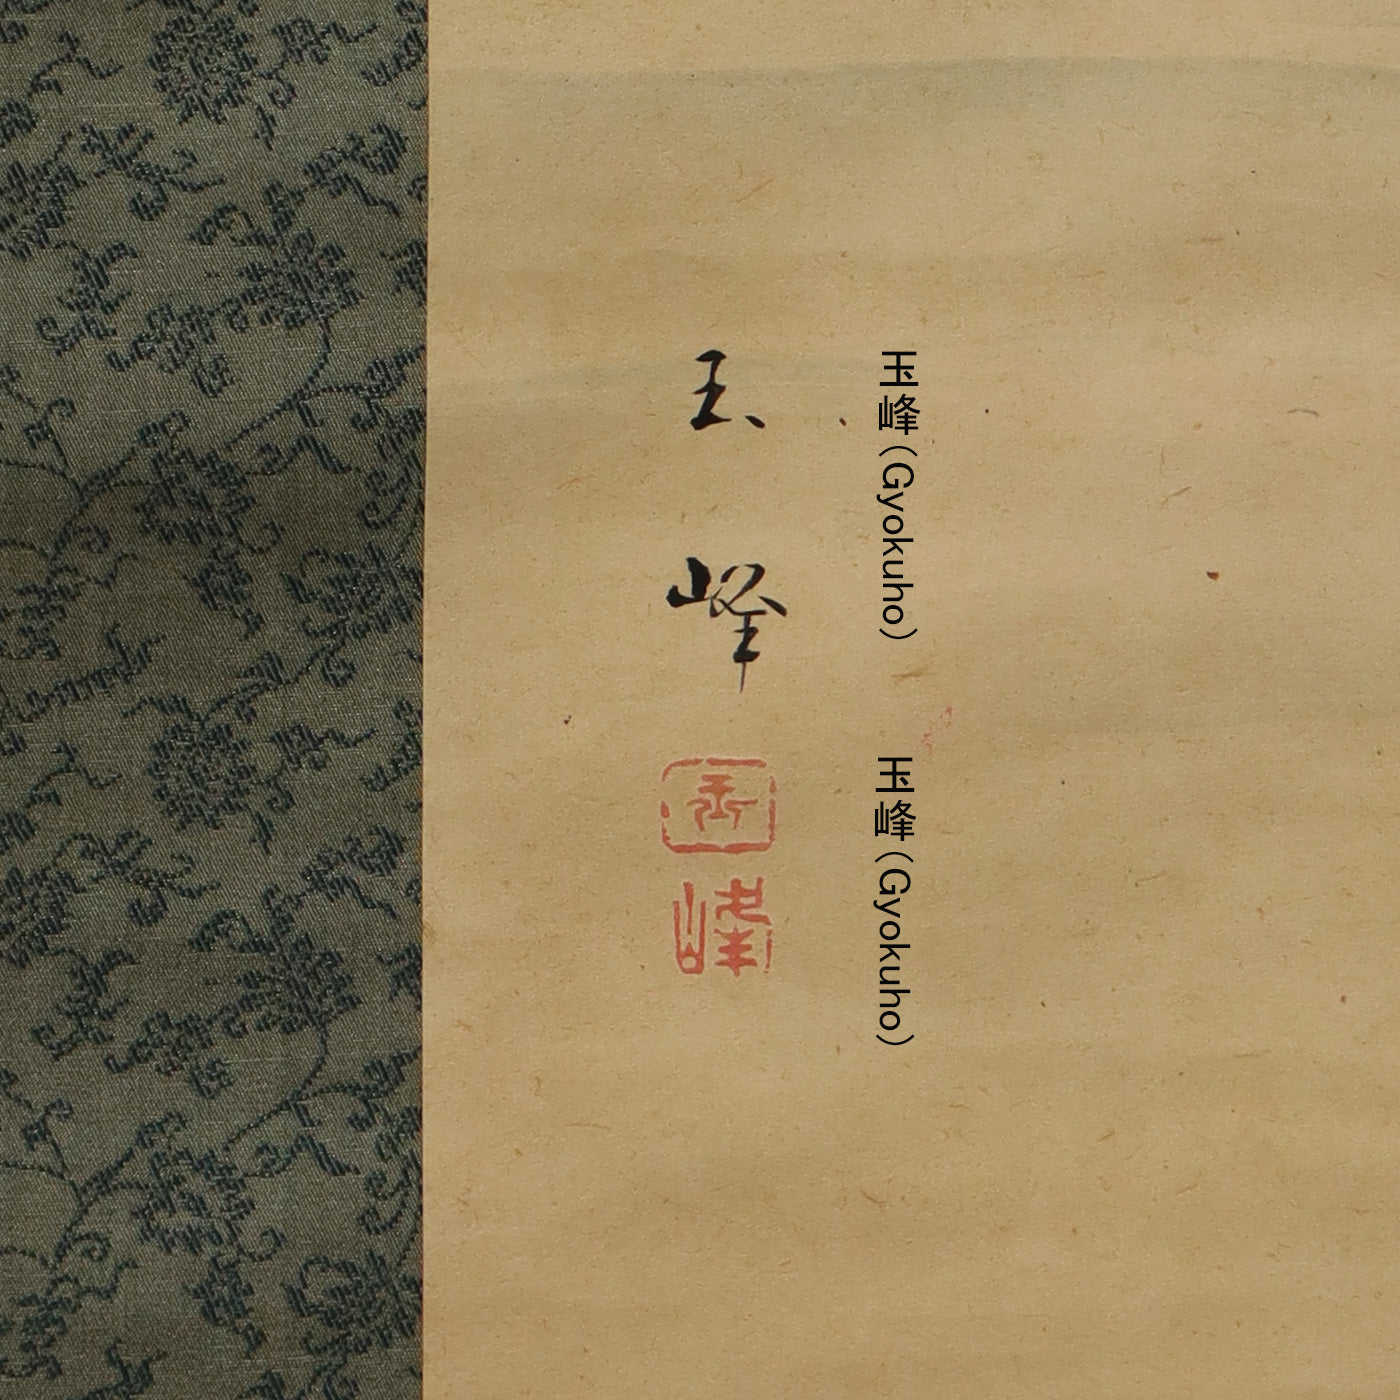 玉峰（Gyokuho）
玉峰（Gyokuho）
玉峰
玉峰